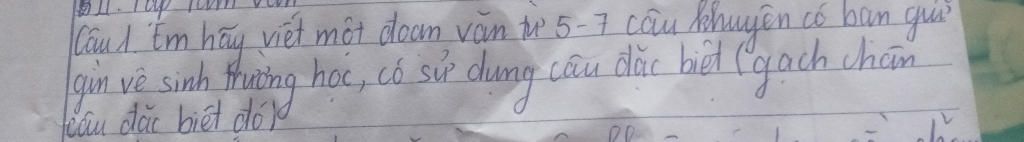 II. Tập làm văn
Câu 1. Em hãy viết một đoạn văn từ 5-7 câu khuyên cá bạn giữ
gìn vệ sinh trường học, có sử dụng câu đặc biệt (gạch chân
câu đặc biệt đó)